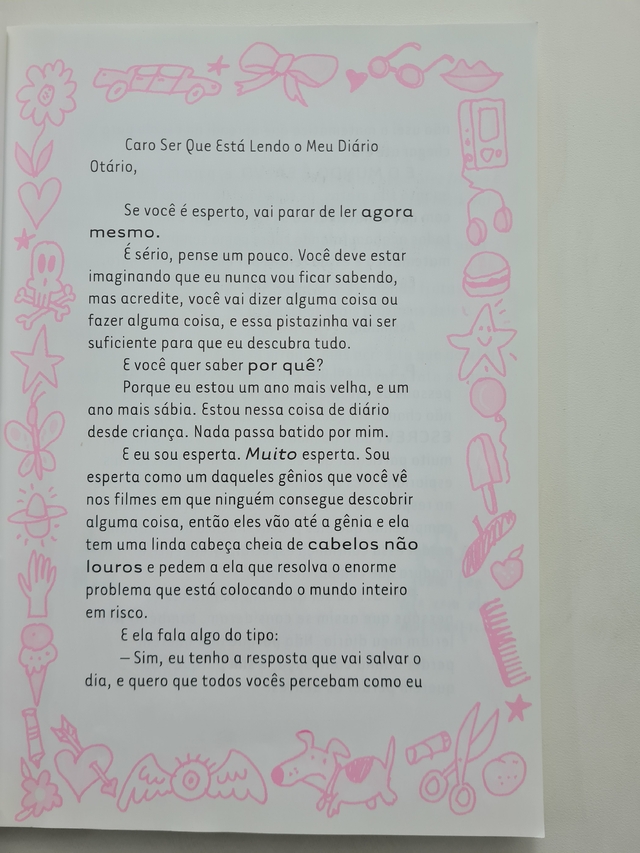 Caro Ser Que Está Lendo o Meu Diário
Otário,
Se você é esperto, vai parar de ler agora
mesmo.
É sério, pense um pouco. Você deve estar
imaginando que eu nunca vou ficar sabendo,
mas acredite, você vai dizer alguma coisa ou
fazer alguma coisa, e essa pistazinha vai ser
suficiente para que eu descubra tudo.
E você quer saber por quê?
Porque eu estou um ano mais velha, e um
ano mais sábia. Estou nessa coisa de diário
desde criança. Nada passa batido por mim.
E eu sou esperta. Muito esperta. Sou
esperta como um daqueles gênios que você vê
nos filmes em que ninguém consegue descobrir
alguma coisa, então eles vão até a gênia e ela
tem uma linda cabeça cheia de cabelos não
louros e pedem a ela que resolva o enorme
problema que está colocando o mundo inteiro
em risco.
E ela fala algo do tipo:
– Sim, eu tenho a resposta que vai salvar o
dia, e quero que todos vocês percebam como eu